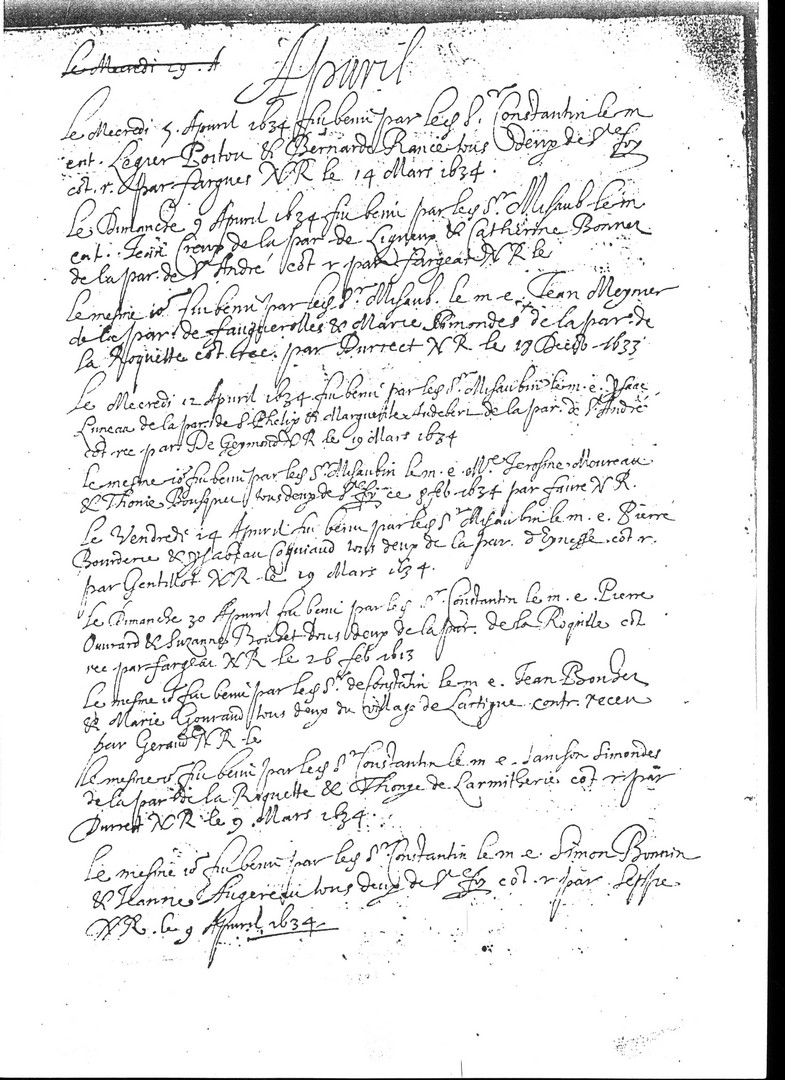 Le Mecredi 29. A
Apuril
Le Mecredi 5. Apuril 1634 fut beni par led Sr Constantin le m
ent. Leger Poitou & Bernarde Rance tous deux de Ste foy
cot. r. par fargues N R le 14 Mars 1634.
Le Dimanche 9 Apuril 1634 fut beni par led Sr Misaub. le m
ent. Jean de la par de Ligneux & Catherine Bonnet
de la par. de St André cot r par fargeau N R le
Le mesme io fut beni par led Sr Misaub. le m e. Jean Meynier
de la par. de fauguerolles & Marie Simondes de la par. de
la Roquette cot. rec. par Durrect N R le 19 Deceb 1633
Le Mecredi 12 Apuril 1634 fut beni par led Sr Misaubin le m. e. Ysaac
Luneau de la par. de St Phelip & Marguerite de la par. de St André
cot rec par De Geymond N R le 19 Mars 1634
Le mesme io fut beni par led Sr Misaubin le m. e. Mr Jerosme Moureau
& Thonie tous deux de Ste foy ce 8 feb 1634 par faure N R.
Le Vendredi 14 Apuril fut beni par led Sr Misaubin le m. e. Pierre
Bourderie & Ysabeau Coquiaud tous deux de la par. d'Eynesse cot. r.
par Gentillot N R le 29 Mars 1634.
Le Dimanche 30 Apuril fut beni par led Sr. Constantin le m. e. Pierre
Ouurard & Suzanne Boudet tous deux de la par. de la Roquille cot
rec par fargeau N R le 26 feb 1613
Le mesme io fut beni par led Sr. de Constatin le m e. Jean
& Marie Gouraud tous deux du village de Lartigue contr. receu
par Geraud N R le
Le mesme io fut beni par led Sr Constantin le m e. Samson Simondes
de la par de la Roquette & Thonye de Larmitherie cot r par
Durrect N R le 9. Mars 1634.
Le mesme io fut beni par led Sr Constantin le m e. Simon Bonnin
& Jeanne Augereau tous deux de Ste foy cot. r par
N R. le 9 Apuril 1634